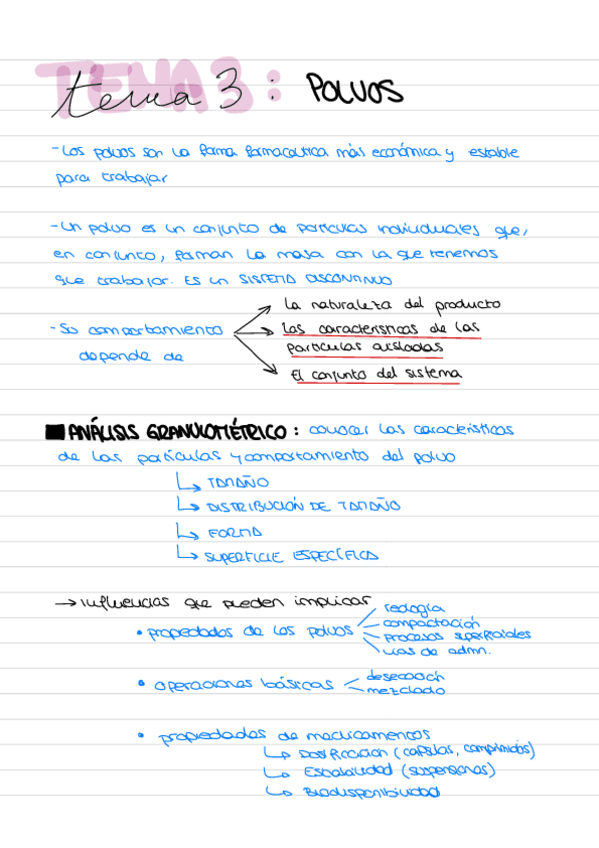 TEMA 3
tema 3: POLVOS
- Los polvos son la forma farmaceútica más económica y estable
para trabajar
- Un polvo es un conjunto de partículas individuales que,
en conjunto, forman la masa con la que tenemos
que trabajar. Es un SISTEMA DISCONTINUO
- Su comportamiento
depende de
La naturaleza del producto
las características de las
partículas aisladas
El conjunto del sistema
ANÁLISIS GRANULOMÉTRICO: conocer las características
de las partículas y comportamiento del polvo
↳ TAMAÑO
↳ DISTRIBUCIÓN DE TAMAÑO
↳ FORMA
↳ SUPERFICIE ESPECÍFICA
→ Influencias que pueden implicar
• propiedades de los polvos
reología
compactación
procesos superficiales
vías de admn.
• operaciones básicas
desecación
mezclado
• propiedades de medicamentos
↳ Dosificación (cápsulas, comprimidos)
↳ Estabilidad (suspensiones)
↳ Biodisponibilidad